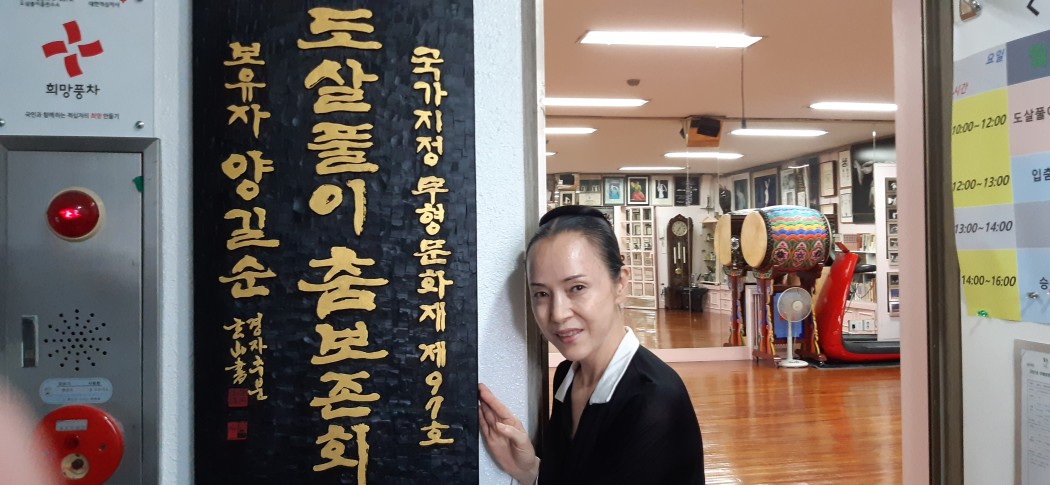 희망풍차
국민과 함께하는 적십자의 희망 만들기
국가지정 무형문화재 제97호
도살풀이춤보존회
보유자 양길순
요일
시간
10:00~12:00
도살풀이
12:00~13:00
입춤
13:00~14:00
14:00~16:00
승